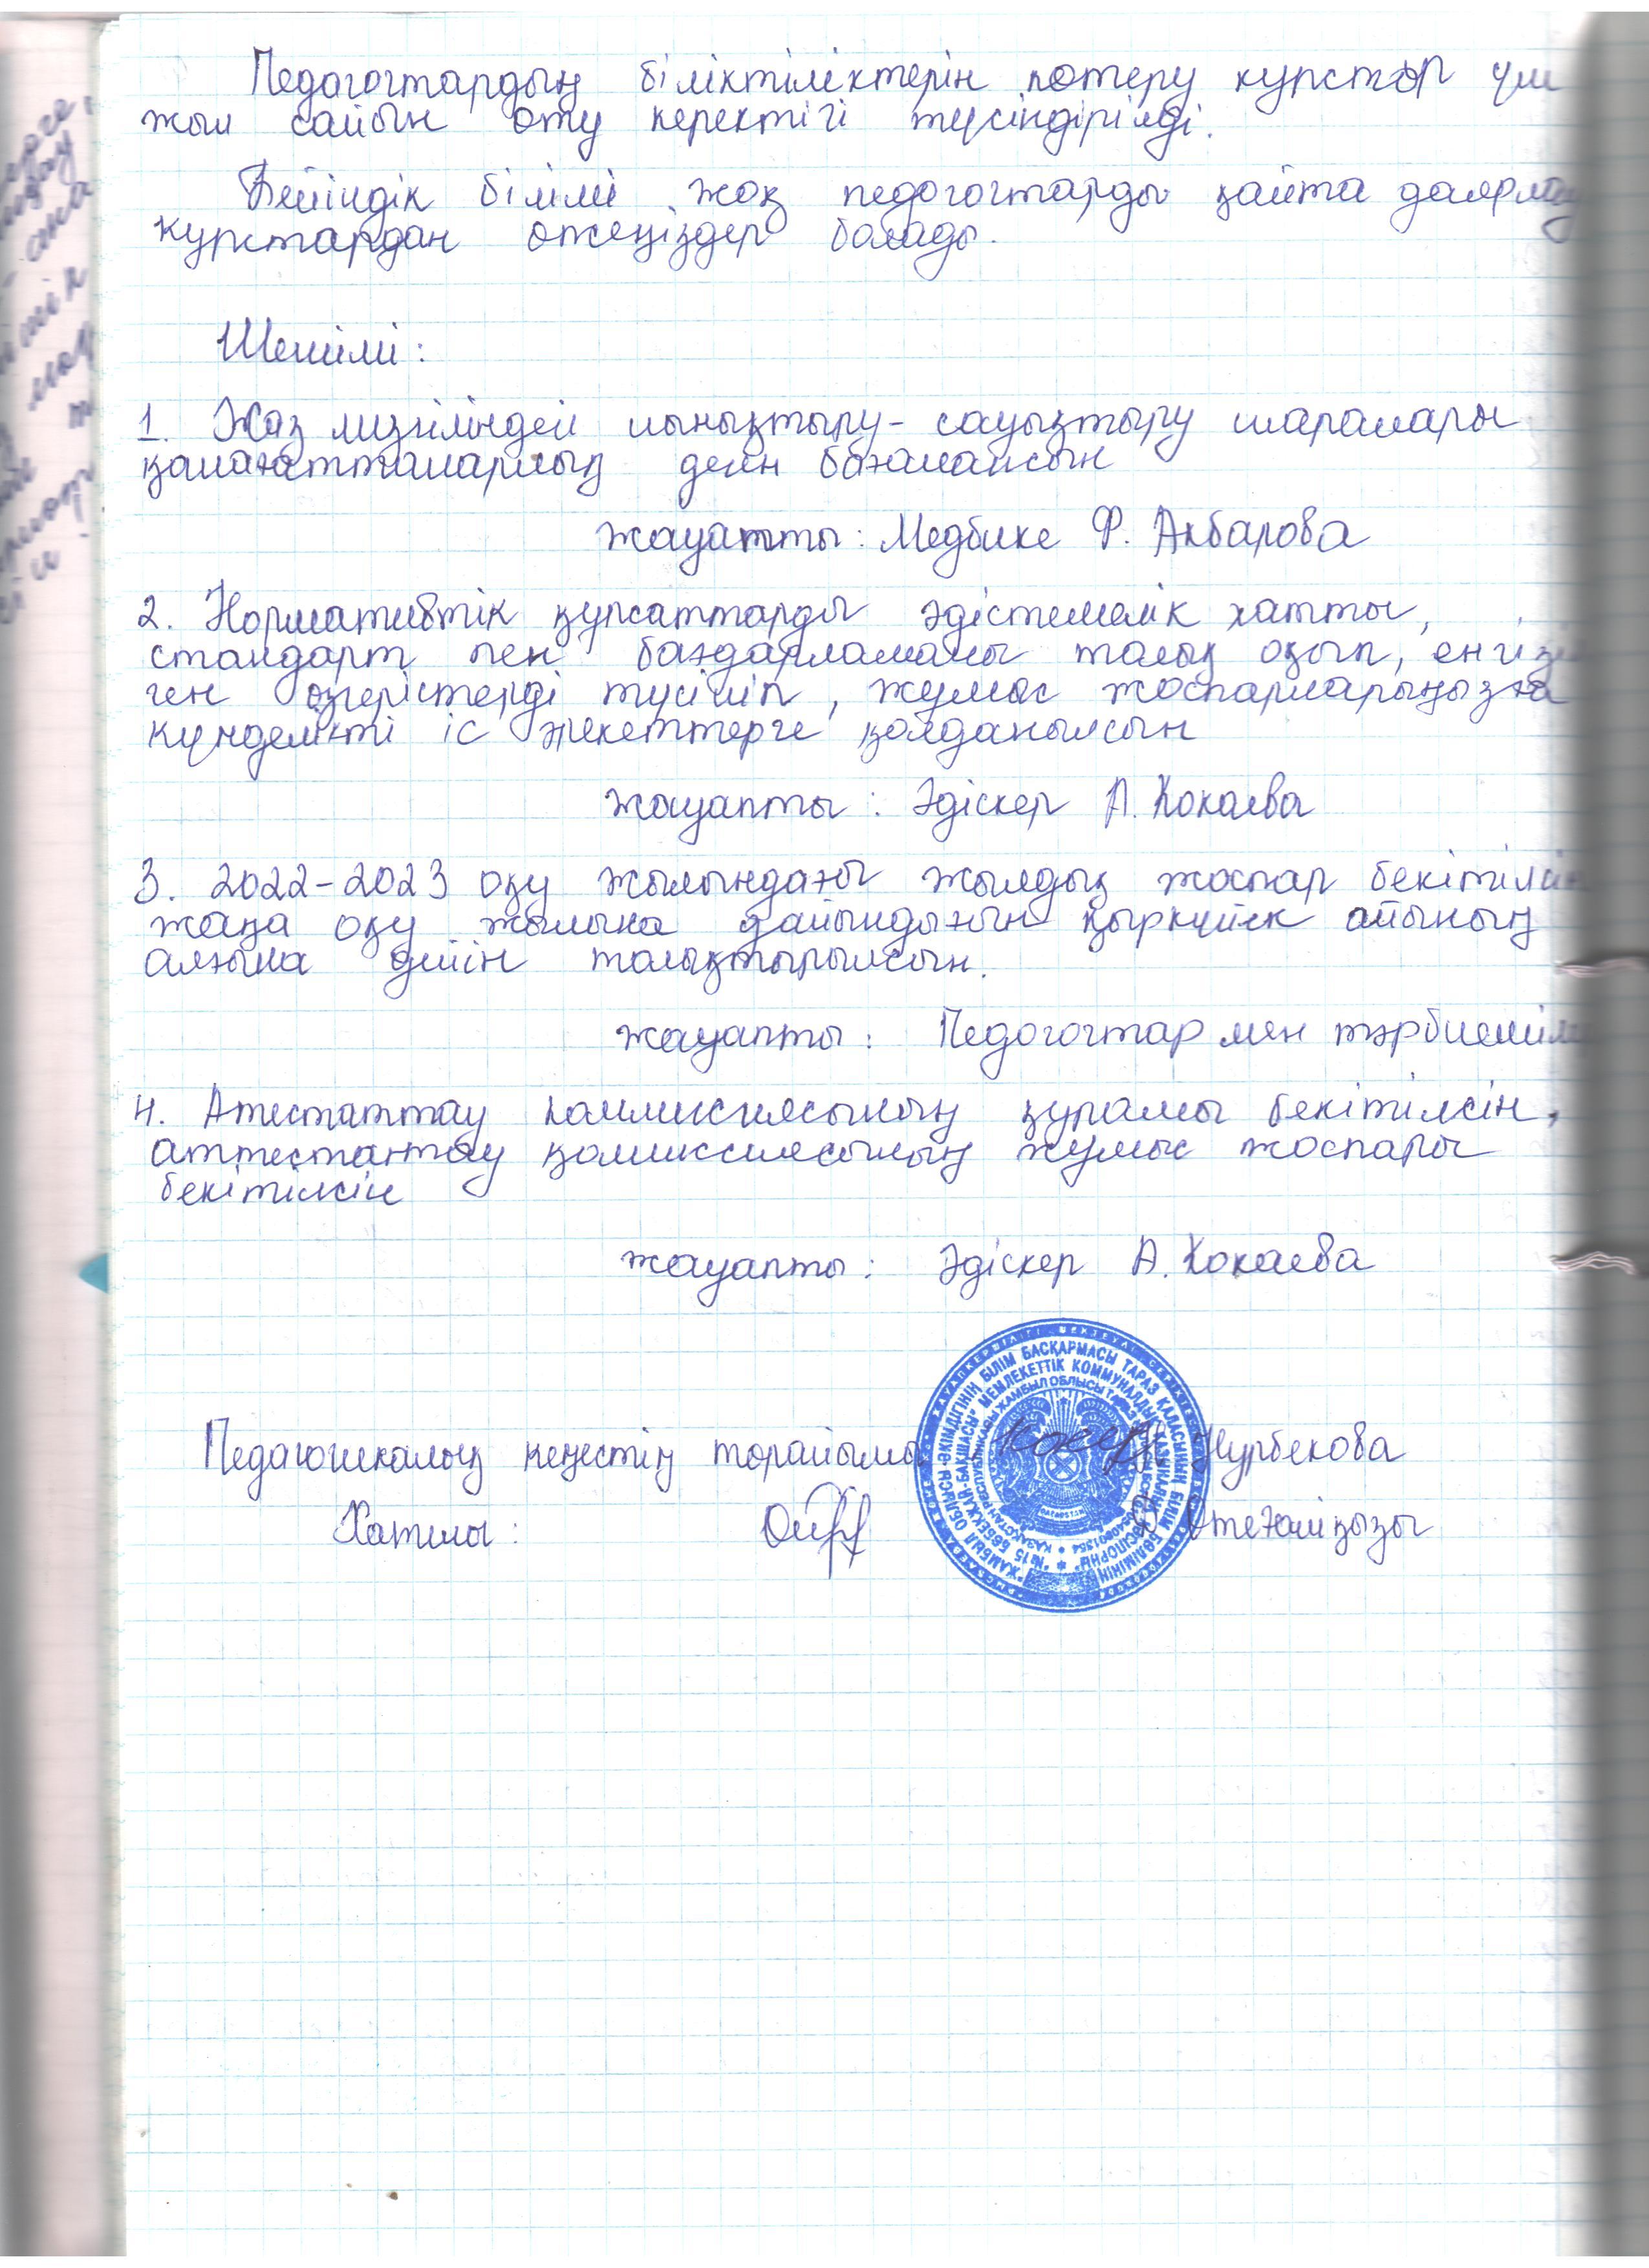 Педагогтардың біліктіліктерін көтеру курстар үш
жыл сайын өту керектігі түсіндірілді.
Бейіндік білімі жоқ педогогтарды қайта даярлау
курстардан өтесіздер болады.
Шешімі:
1. Жаз мезгіліндегі шынықтыру-сауықтыру шаралары
қанағаттанарлық деп бағалансын
жауапты: Медбике Ф. Акбарова
2. Нормативтік құжаттарды әдістемелік хатты,
стандарт пен бағдарламаны толық оқып, енгізіл
ген өзгерістерді түсініп, жұмыс жоспарларыңызға
күнделікті іс әрекеттерге қолданылсын
жауапты: Әдіскер А. Кокаева
3. 2022-2023 оқу жылындағы жылдық жоспар бекітілсін
жаңа оқу жылына дайындығын қыркүйек айының
алғына дейін толықтырылсын.
жауапты: Педогогтар мен тәрбиешілер
4. Атестаттау коммисиясының құрамы бекітілсін,
аттестаттау комиссиясының жұмыс жоспары
бекітілсін
жауапты: Әдіскер А. Кокаева
Педагогикалық кеңестің төрайымы Нурбекова
Хатшы: Өтеғалиқызы
ЖАМБЫЛ ОБЛЫСЫ ӘКІМДІГІНІҢ БІЛІМ БАСҚАРМАСЫ ТАРАЗ ҚАЛАСЫНЫҢ БІЛІМ БӨЛІМІНІҢ
"№15 БӨБЕКЖАЙ-БАҚШАСЫ" МЕМЛЕКЕТТІК КОММУНАЛДЫҚ ҚАЗЫНАЛЫҚ КӘСІПОРНЫ